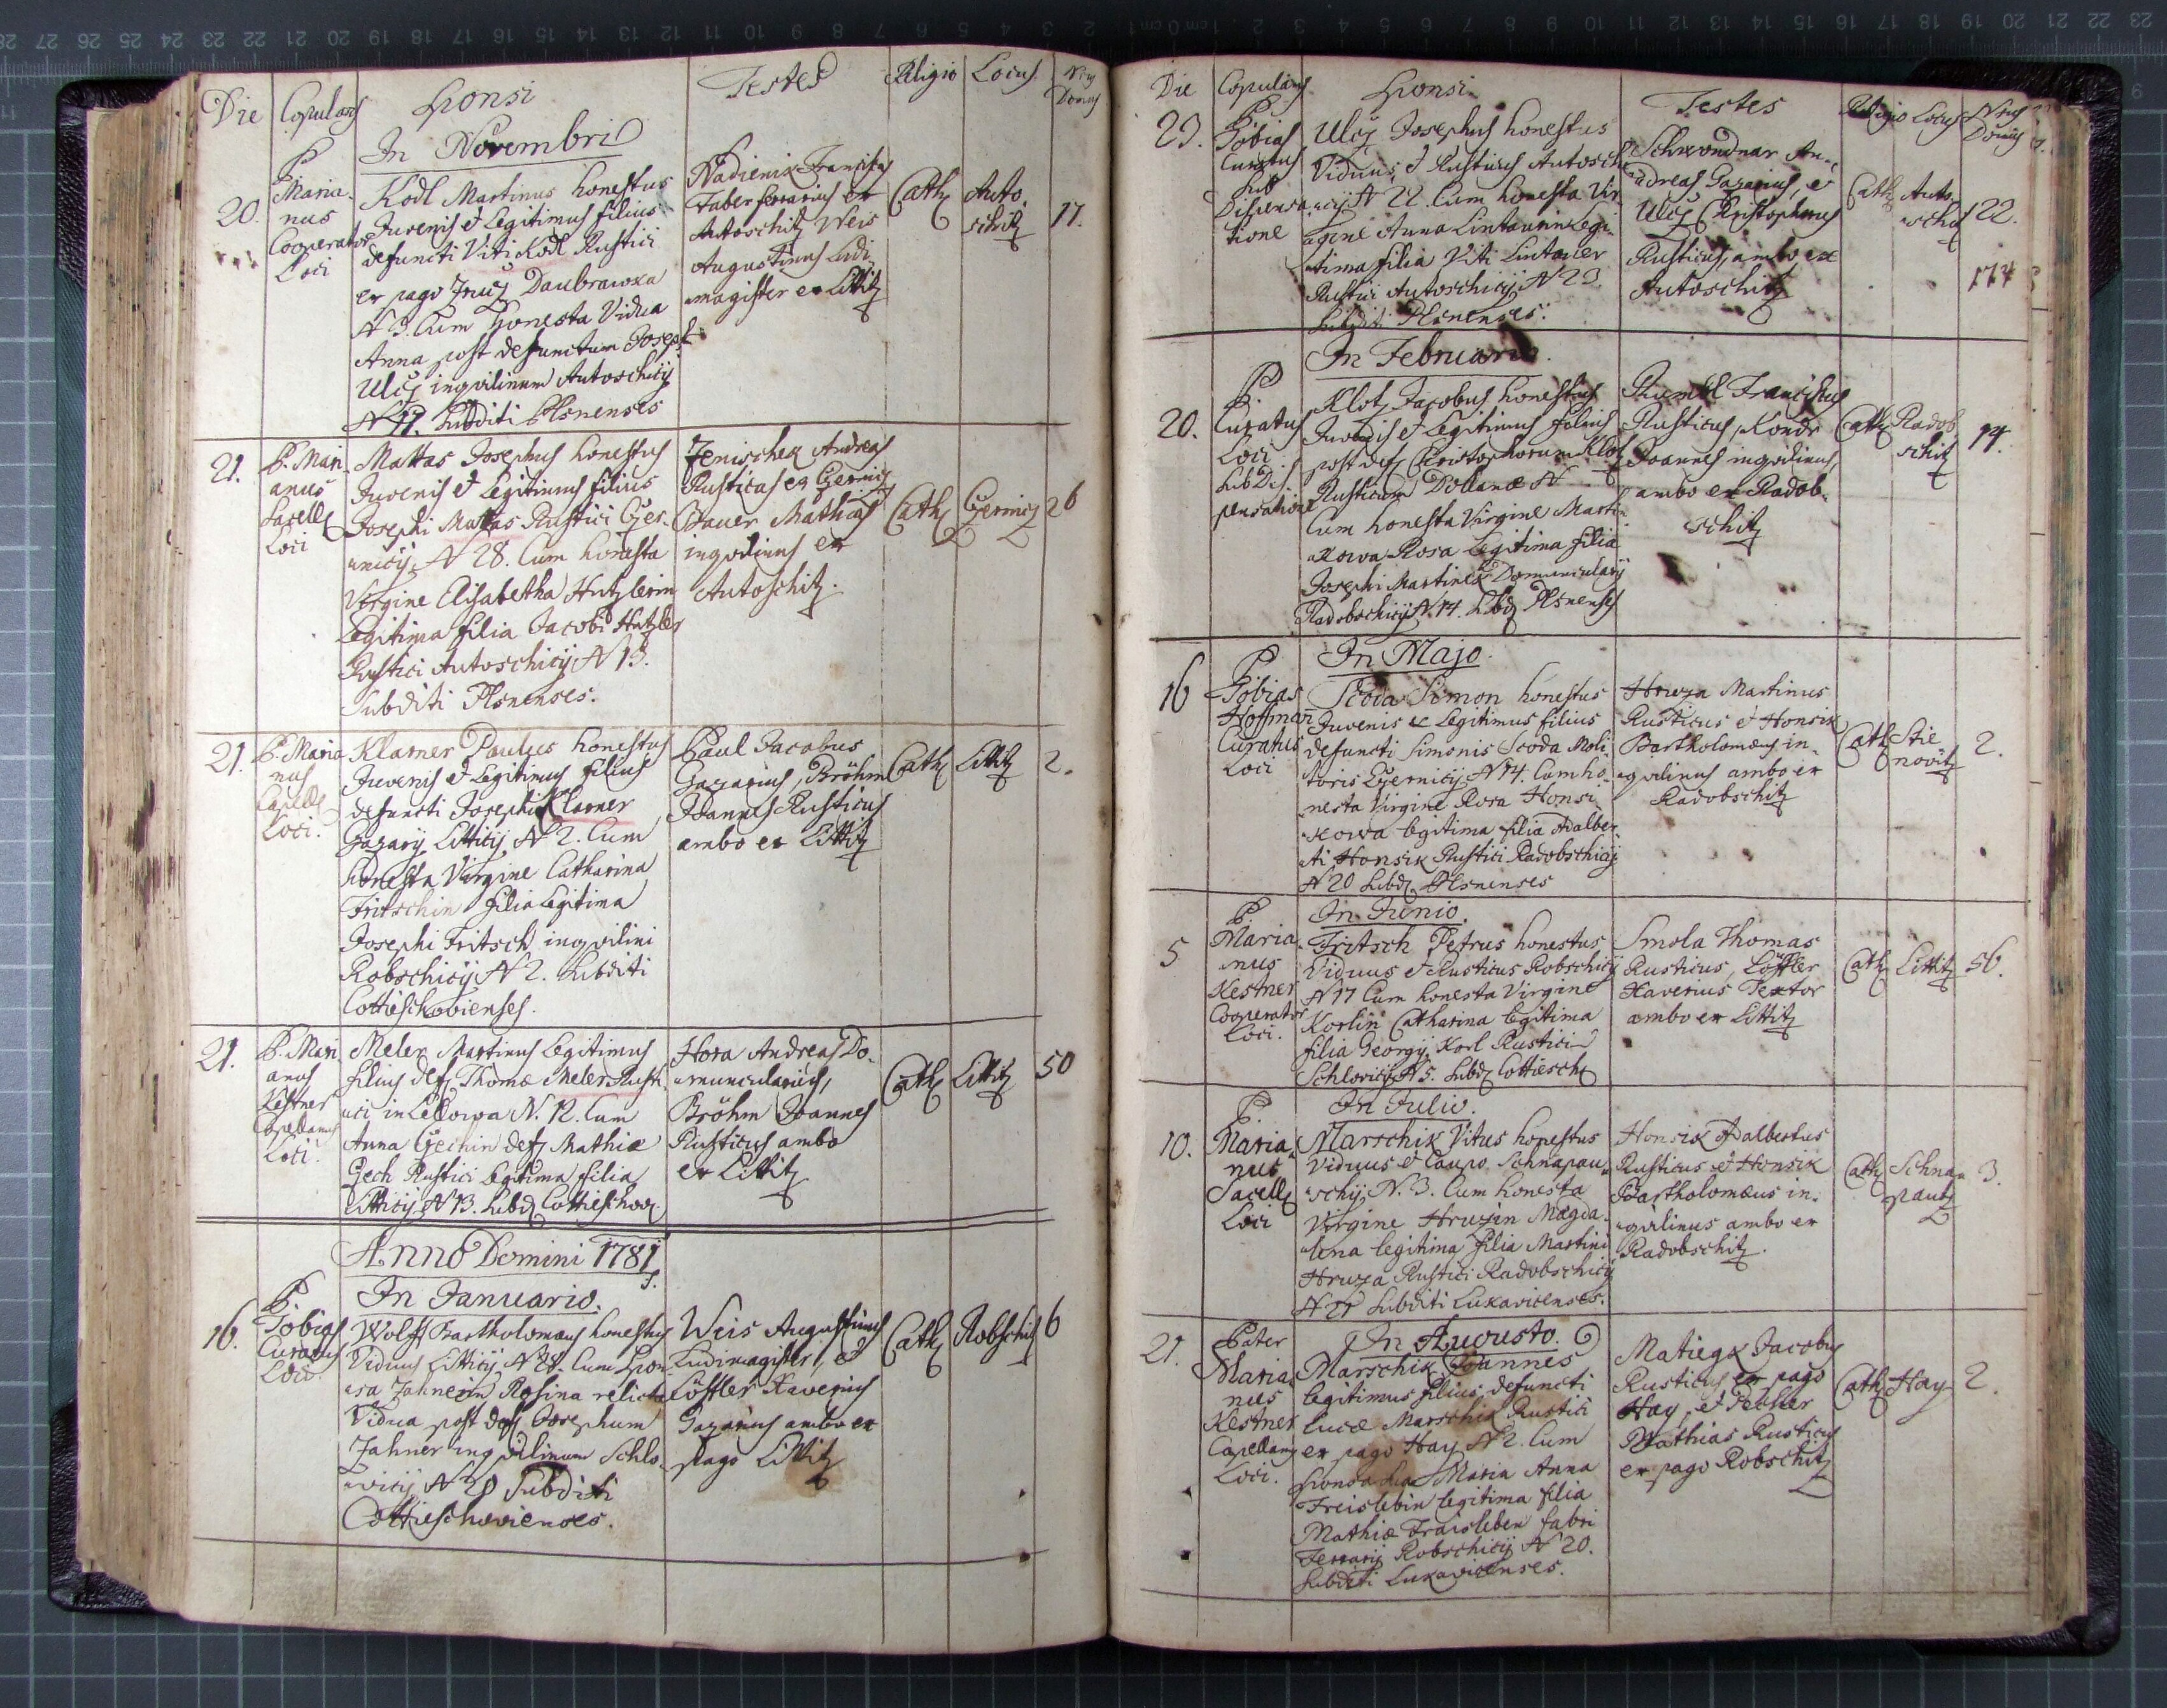 Die Copulans Sponsi Testes Religio Locus Nrus Domus
In Novembri
20.
P. Maria-
nus
Cooperator
Loci
Kodl Martinus honestus
Juvenis et Legitimus filius
defuncti Viti Kodl Rustici
ex pago Daubrawka
N 3. Cum Honesta Vidua
Anna post defunctum Joseph
Ulcz inqvilinum Autoschicij
N 17. Subditi Plsnenses
Nadienik Franciscus
Faber ferrarius ex
Autoschitz Weis
Augustinus Ludi-
magister ex Littitz
Cath
Auto-
schitz
17.
21.
P. Mari-
anus
Sacell
Loci
Mattas Josephus honestus
Juvenis et Legitimus filius
Josephi Mattas Rustici Czer-
nicij N 28. Cum honesta
Virgine Elisabetha Hutzlerin
Legitima filia Jacobi Hutzler
Rustici Autoschicij N 13.
Subditi Plsnenses.
Jenischek Andreas
Rusticus ex Czernitz
Bauer Mathias
inqvilinus ex
Autoschitz.
Cath
Czernitz
26
21.
P. Maria-
nus
Capell
Loci.
Klarner Paulus honestus
Juvenis et Legitimus filius
defuncti Josephi Klarner
Gazarij Litticij N 2. Cum
honesta Virgine Catharina
Fritschin filia Legitima
Josephi Fritsch inqvilini
Robschicij N 2. Subditi
Cottieschovienses.
Paul Jacobus
Gazarius, Bröhm
Joannes Rusticus
ambo ex Littitz
Cath
Littitz
2.
21.
P. Mari-
anus
Kestner
Capellanus
Loci.
Meler Martinus Legitimus
filius def. Thomæ Meler Rusti-
ci in Lellowa N. 12. Cum
Anna Czechin def. Mathiæ
Czech Rustici Legitima filia
Litticij N 13. Subd. Cottieschov.
Hora Andreas Do-
muncularius,
Bröhm Joannes
Rusticus ambo
ex Littitz
Cath
Littitz
50
Anno Domini 1781
In Januario.
16.
P.
Tobias
Curatus
Loci.
Wolff Bartholomæus honestus
Viduus Litticij N 28. Cum Spon-
sa Jahnerin Rosina relicta
Vidua post def. Josephum
Jahner inqvilinum Schlo-
wicij N 20 Subditi
Cottieschovienses.
Weis Augustinus
Ludimagister, et
Löffler Xaverius
Gazarius ambo ex
pago Littitz
Cath
Robschitz
6
Die Copulans Sponsi Testes Religio Locus Nrus Domus
23.
P.
Tobias
Curatus
Sub
Dispensa-
tione
Ulcz Josephus honestus
Viduus et Rusticus Autosch-
icij N 22. Cum honesta Vir-
gine Anna Lintnerin Legi-
tima filia Viti Lintner
Rustici Autoschicij N 23.
Subditi Plsnenses.
Schwondnar An-
dreas Gazarius, et
Ulcz Christophorus
Rusticus, ambo ex
Autoschitz
Cath
Auto-
schitz
22.
174
In Februario.
20.
P.
Curatus
Loci
Sub Dis-
pensatione
Klotz Jacobus honestus
Juvenis et Legitimus filius
post def. Christophorum Klotz
Rusticum Dollanæ N
Cum honesta Virgine Marti-
kowa Rosa Legitima filia
Josephi Martinek Domuncularij
Radobschicij N. 14. Subd. Plsnenses
Franciscus
Rusticus,
Joannes inqvilinus,
ambo ex Radob-
schitz
Cath
Radob
schitz
14.
In Majo.
16
P.
Tobias
Hoffman
Curatus
Loci
Scoda Simon honestus
Juvenis et Legitimus filius
defuncti Simonis Scoda Moli-
toris Czernicij N 14. Cum ho-
nesta Virgine Rosa Honsi-
kowa legitima filia Adalber-
ti Honsik Rustici Radobschicij
N 20 Subd. Plsnenses
Hruza Martinus
Rusticus et Honsik
Bartholomæus in-
qvilinus ambo ex
Radobschitz
Cath
Stie
novitz
2.
In Junio.
5
P.
Maria-
nus
Kestner
Cooperator
Loci.
Fritsch Petrus honestus
Viduus et Rusticus Robschicij
N 17 Cum honesta Virgine
Korlin Catharina legitima
filia Georgij Korl Rustici
Schlovicij N 5. Subd. Cottiesch
Smola Thomas
Rusticus, Löffler
Xaverius Textor
ambo ex Littitz
Cath
Littitz
56.
In Julio.
10.
P.
Maria-
nus
Sacell
Loci
Marschik Vitus honestus
Viduus et Caupo Schnapau-
schij N. 3. Cum honesta
Virgine Hruzin Magda-
lena legitima filia Martini
Hruza Rustici Radobschicij
N 21 Subditi Lukavicenses.
Honsik Adalbertus
Rusticus et Honsik
Bartholomæus in-
qvilinus ambo ex
Radobschitz.
Cath
Schna-
pautz
3.
In Augusto.
21.
Pater
Maria-
nus
Kestner
Capellanus
Loci.
Marschik Joannes
legitimus filius defuncti
Lucæ Marschik Rustici
ex pago Hay N 2. Cum
Sponsa sua Maria Anna
Freislebin legitima filia
Mathiæ Fraisleben fabri
Ferrarij Robschicij N 20.
Subditi Lukavicenses.
Matiegk Jacobus
Rusticus ex pago
Hay, et
Mathias Rusticus
ex pago Robschitz
Cath
Hay
2.